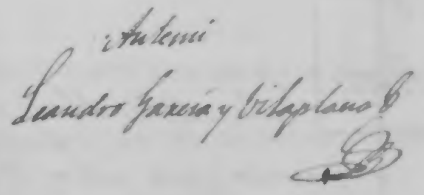 Antemi
Leandro García y Vilaplana